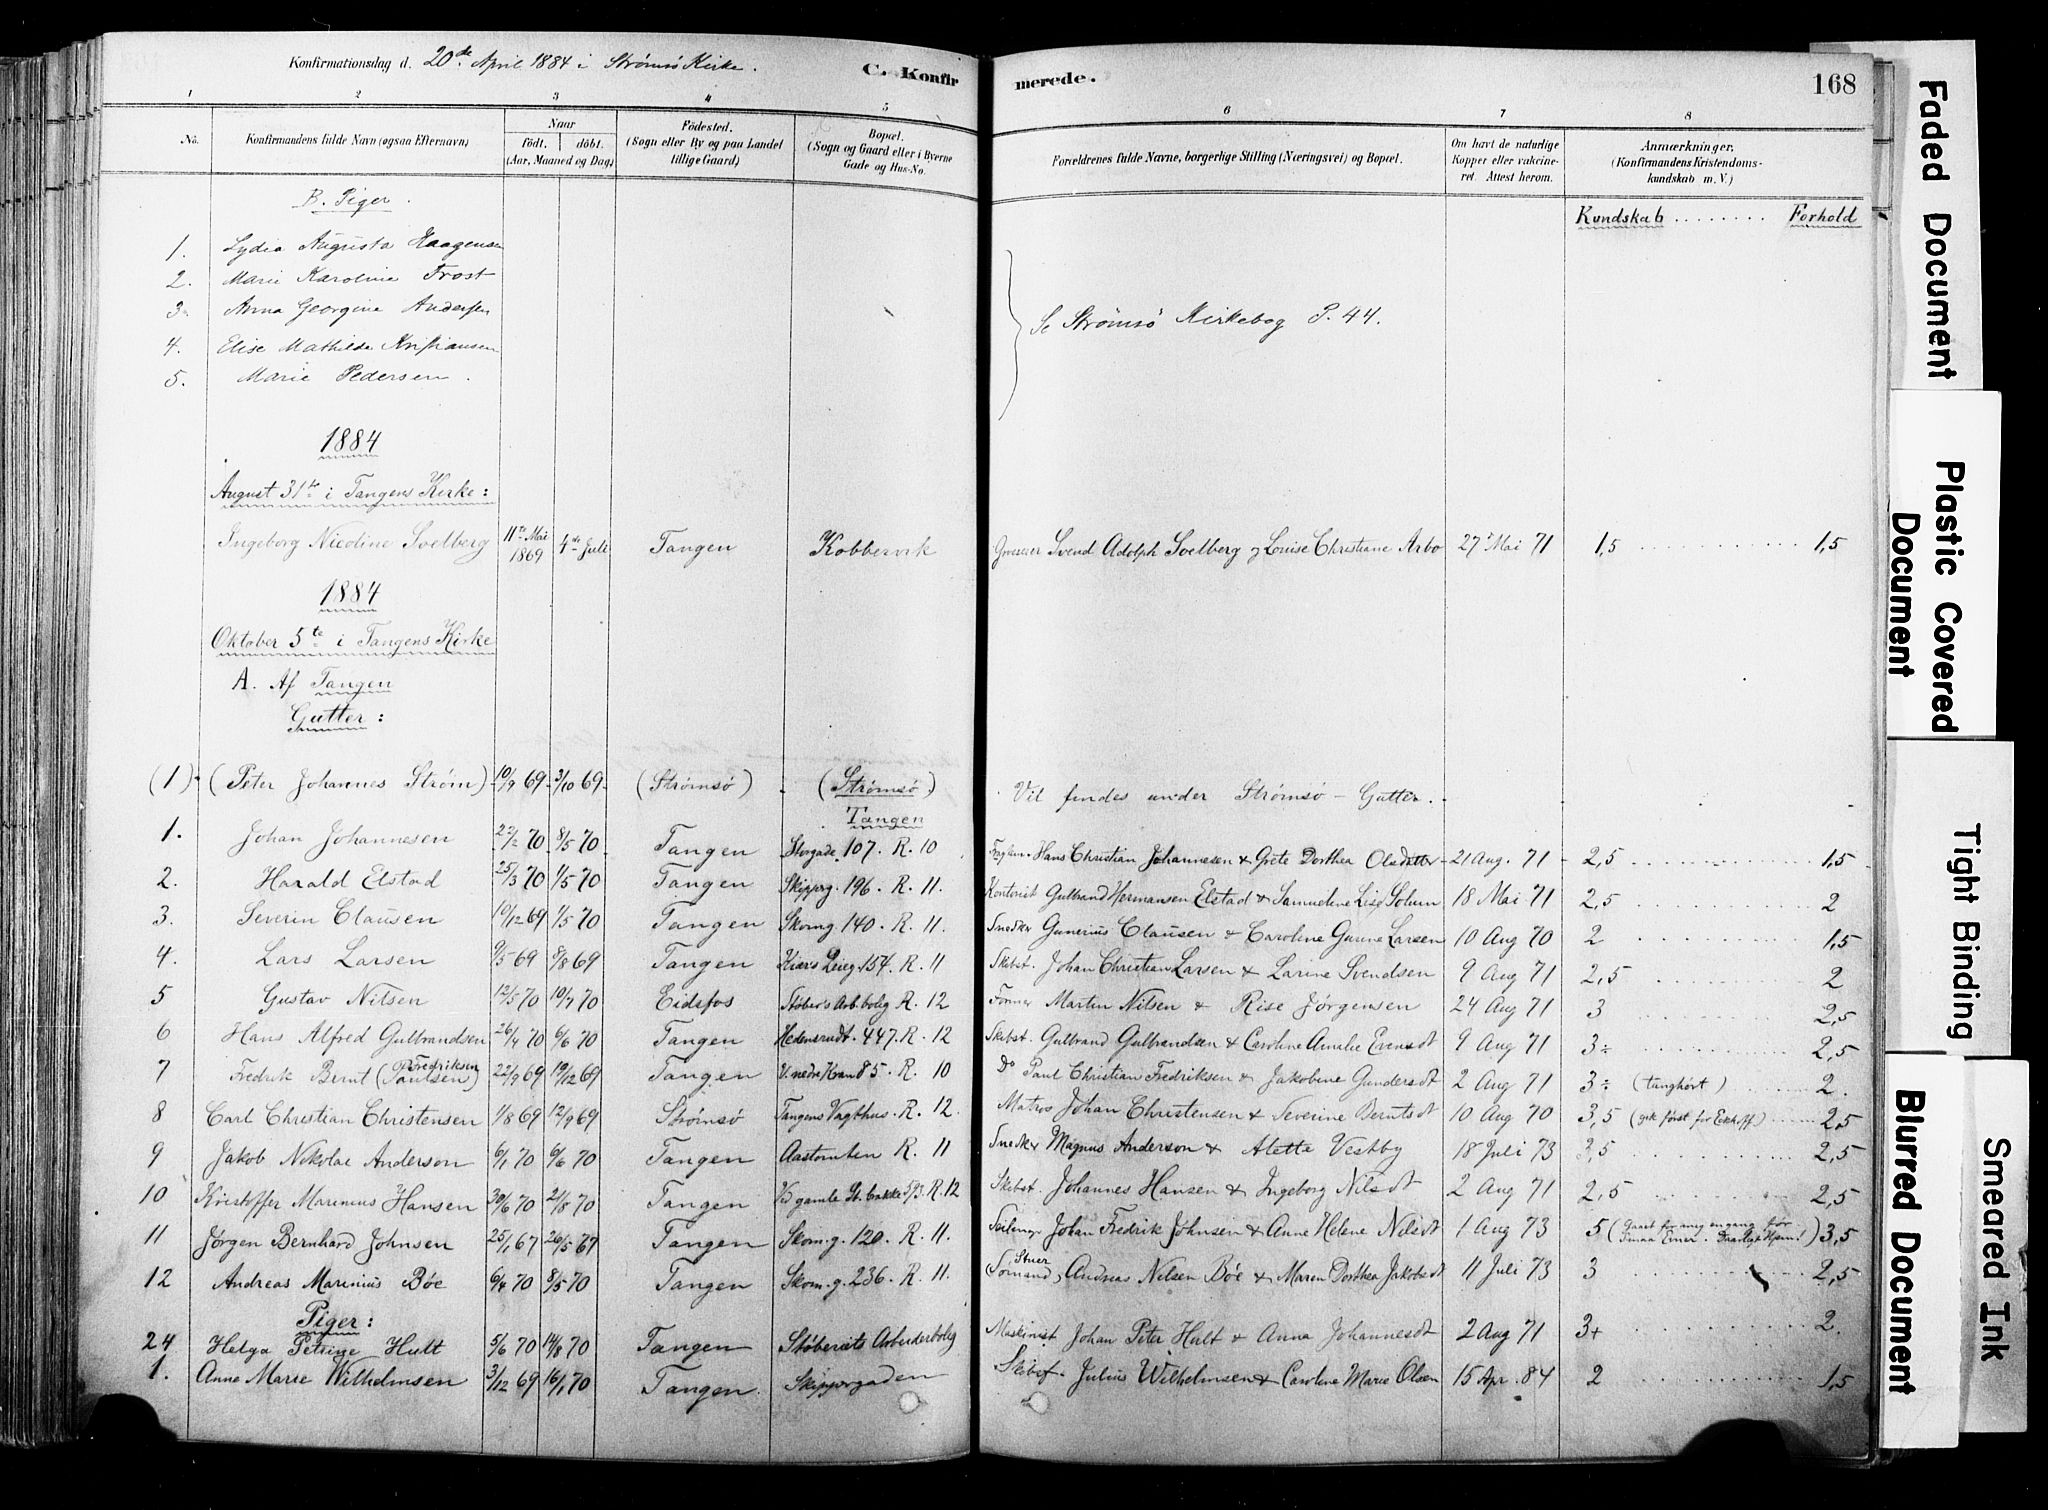 Konfirmationsdag d. 20de April 1884 i Strømsø Kirke.
C. Konfirmerede.
168
1 2 3 4 5 6 7 8
No.
Konfirmandens fulde Navn (ogsaa Efternavn)
Naar
födt. döbt.
(Aar, Maaned og Dag)
Födested.
(Sogn eller By og paa Landet
tillige Gaard)
Bopæl.
(Sogn og Gaard eller i Byerne
Gade og Hus-No.
Forældrenes fulde Navne, borgerlige Stilling (Næringsvei) og Bopæl.
Om havt de naturlige
Kopper eller vakcine-
ret. Attest herom.
Anmærkninger,
(Konfirmandens Kristendoms-
kundskab m. V.)
B. Piger.
Kundskab ........ Forhold
1. Lydia Augusta Haagensen
2. Marie Karoline Frost
3. Anna Georgine Andersen
4. Elise Mathilde Kristiansen
5. Marie Pedersen.
Se Strømsø Kirkebog P. 44.
1884
August 31te i Tangens Kirke:
Ingeborg Nicoline Soelberg 11te Mai 1869 4de Juli Tangen Kobbervik Svend Adolph Soelberg og Louise Christiane Arbo 27' Mai 71 1,5 ........ 1,5
1884
Oktober 5te i Tangens Kirke
A. Af Tangen
Gutter:
(1) (Peter Johannes Strøm) 10/9 69 3/10 69 (Strømsø) (Strømsø) Vil findes under Strømsø - Gutter.
Tangen
1. Johan Johannesen 22/2 70 8/5 70 Tangen Storgade 107. R. 10 Hans Christian Johannesen & Grete Dorthea Olsdatter 21 Aug. 71 2,5 ........ 1,5
2. Harald Elstad 25/3 70 1/5 70 Tangen Skipperg. 196. R. 11. Kontorist Gulbrand Hermansen Elstad & Samueline Lise Solum 18 Mai 71 2,5 ........ 2
3. Severin Clausen 10/12 69 1/5 70 Tangen Skomg. 140. R. 11. Snedker Gunerius Clausen & Caroline Gunne Larsen 10 Aug 70 2 ........ 1,5
4. Lars Larsen 9/5 69 8/8 69 Tangen Kiærs Leieg. 154. R. 11 Skibst. Johan Christian Larsen & Larine Svendsen 9 Aug 71 2,5 ........ 2
5 Gustav Nilsen 12/5 70 10/7 70 Eidsfos Støber's Arb.bolig R. 12 Former Martin Nilsen & Rise Jørgensen 24 Aug 71 3 ........ 2,5
6 Hans Alfred Gulbrandsen 26/4 70 6/6 70 Tangen Hedensrudt. 447. R. 12 Skibst. Gulbrand Gulbrandsen & Caroline Amalie Evensdt 9 Aug 71 3÷ ........ 2,5
7 Fredrik Bernt (Paulsen) Fredriksen 22/9 69 19/12 69 Tangen V. nedre Kran 85. R. 10 Do Paul Christian Fredriksen & Jakobine Gundersdt 2 Aug 71 3÷ (tunghørt) ........ 2.
8 Carl Christian Christensen 1/8 69 12/9 69 Strømsø Tangens Vagthus. R. 12. Matros Johan Christensen & Severine Berntsdt 10 Aug 70 3,5 (gik først for Eckhoff) ........ 2,5
9 Jakob Nikolai Anderson 6/1 70 6/6 70 Tangen Aastomten R. 11 Snedker Magnus Anderson & Alette Vestby 18 Juli 73 3,5 ........ 2,5
10 Kristoffer Marinius Hansen 30/6 70 21/8 70 Tangen Ved gamle St. bakke 593. R. 12 Skibst. Johannes Hansen & Ingeborg Nilsdt 2 Aug 71 2,5 ........ 2,5
11 Jørgen Bernhard Johnsen 25/1 67 26/5 67 Tangen Skom.g. 120. R. 11. Johan Fredrik Johnsen & Anne Helene Nilsdt 1 Aug 73 5 (Gaaet for mig engang før) 3,5
12 Andreas Marinius Bøe 6/4 70 8/5 70 Tangen Skom.g. 236. R. 11. Andreas Nilsen Bøe & Maren Dorthea Jakobsdt 11 Juli 73 3 ........ 2,5
Piger:
24 Helga Petrine Hult 5/6 70 14/8 70 Tangen Støberiets Arbeiderbolig Maskinist Johan Peter Hult & Anna Johannesdt 2 Aug 71 3+ ........ 2.
1. Anne Marie Wilhelmsen 3/12 69 16/1 70 Tangen. Skippergaden Skibsf. Julius Wilhelmsen & Caroline Marie Olsen 15 Apr. 84 2 ........ 1,5
Faded Document
Plastic Covered
Document
Tight Binding
Blurred Document
Smeared Ink